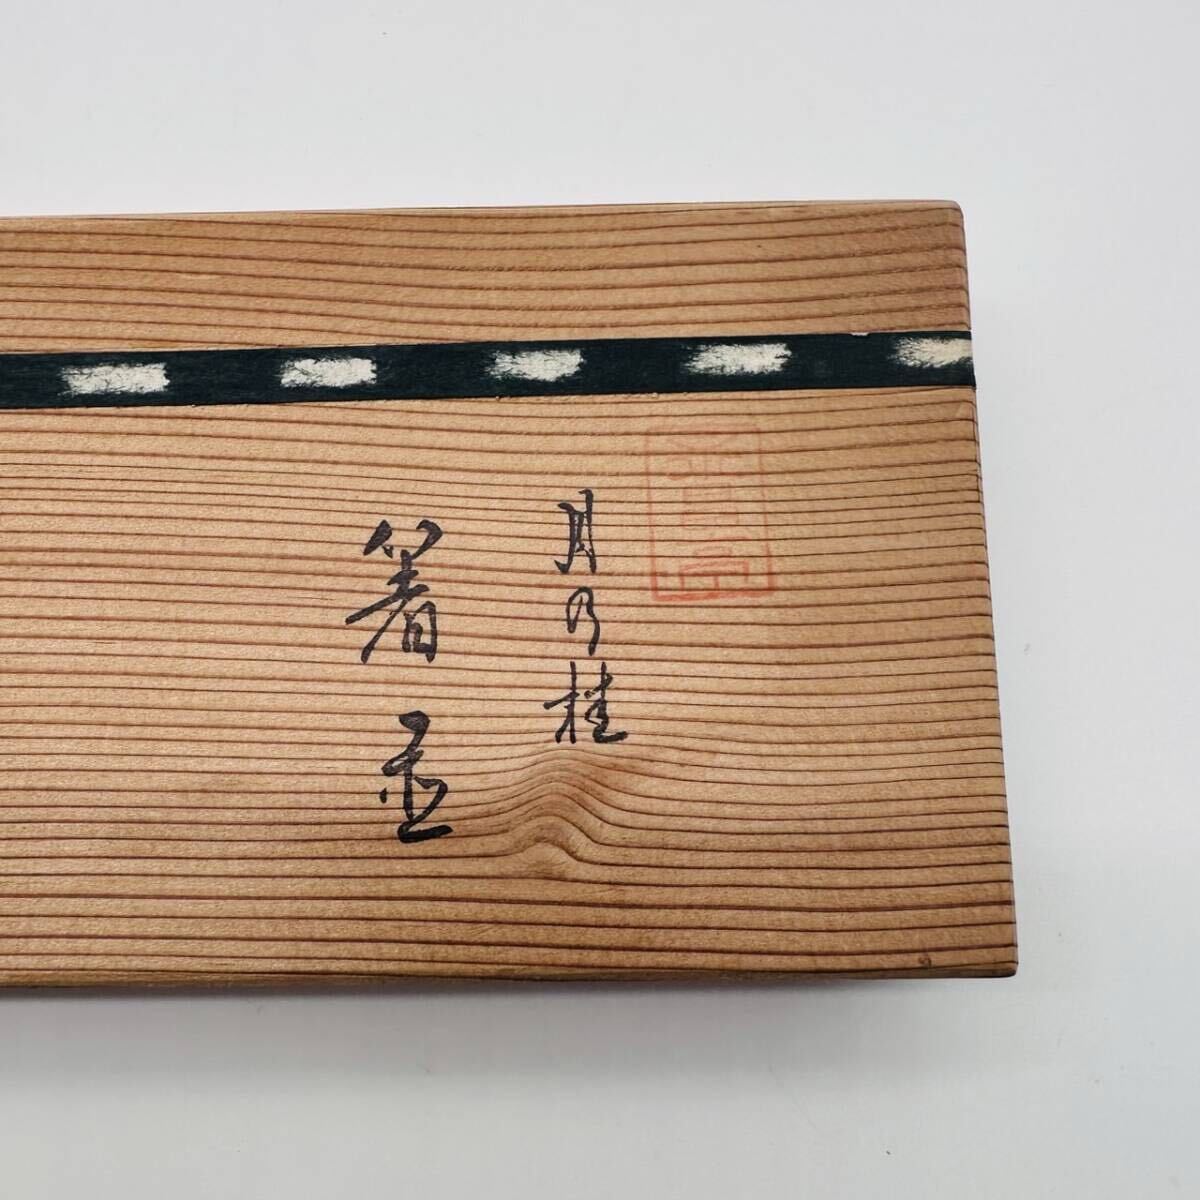 月乃桂
箸置